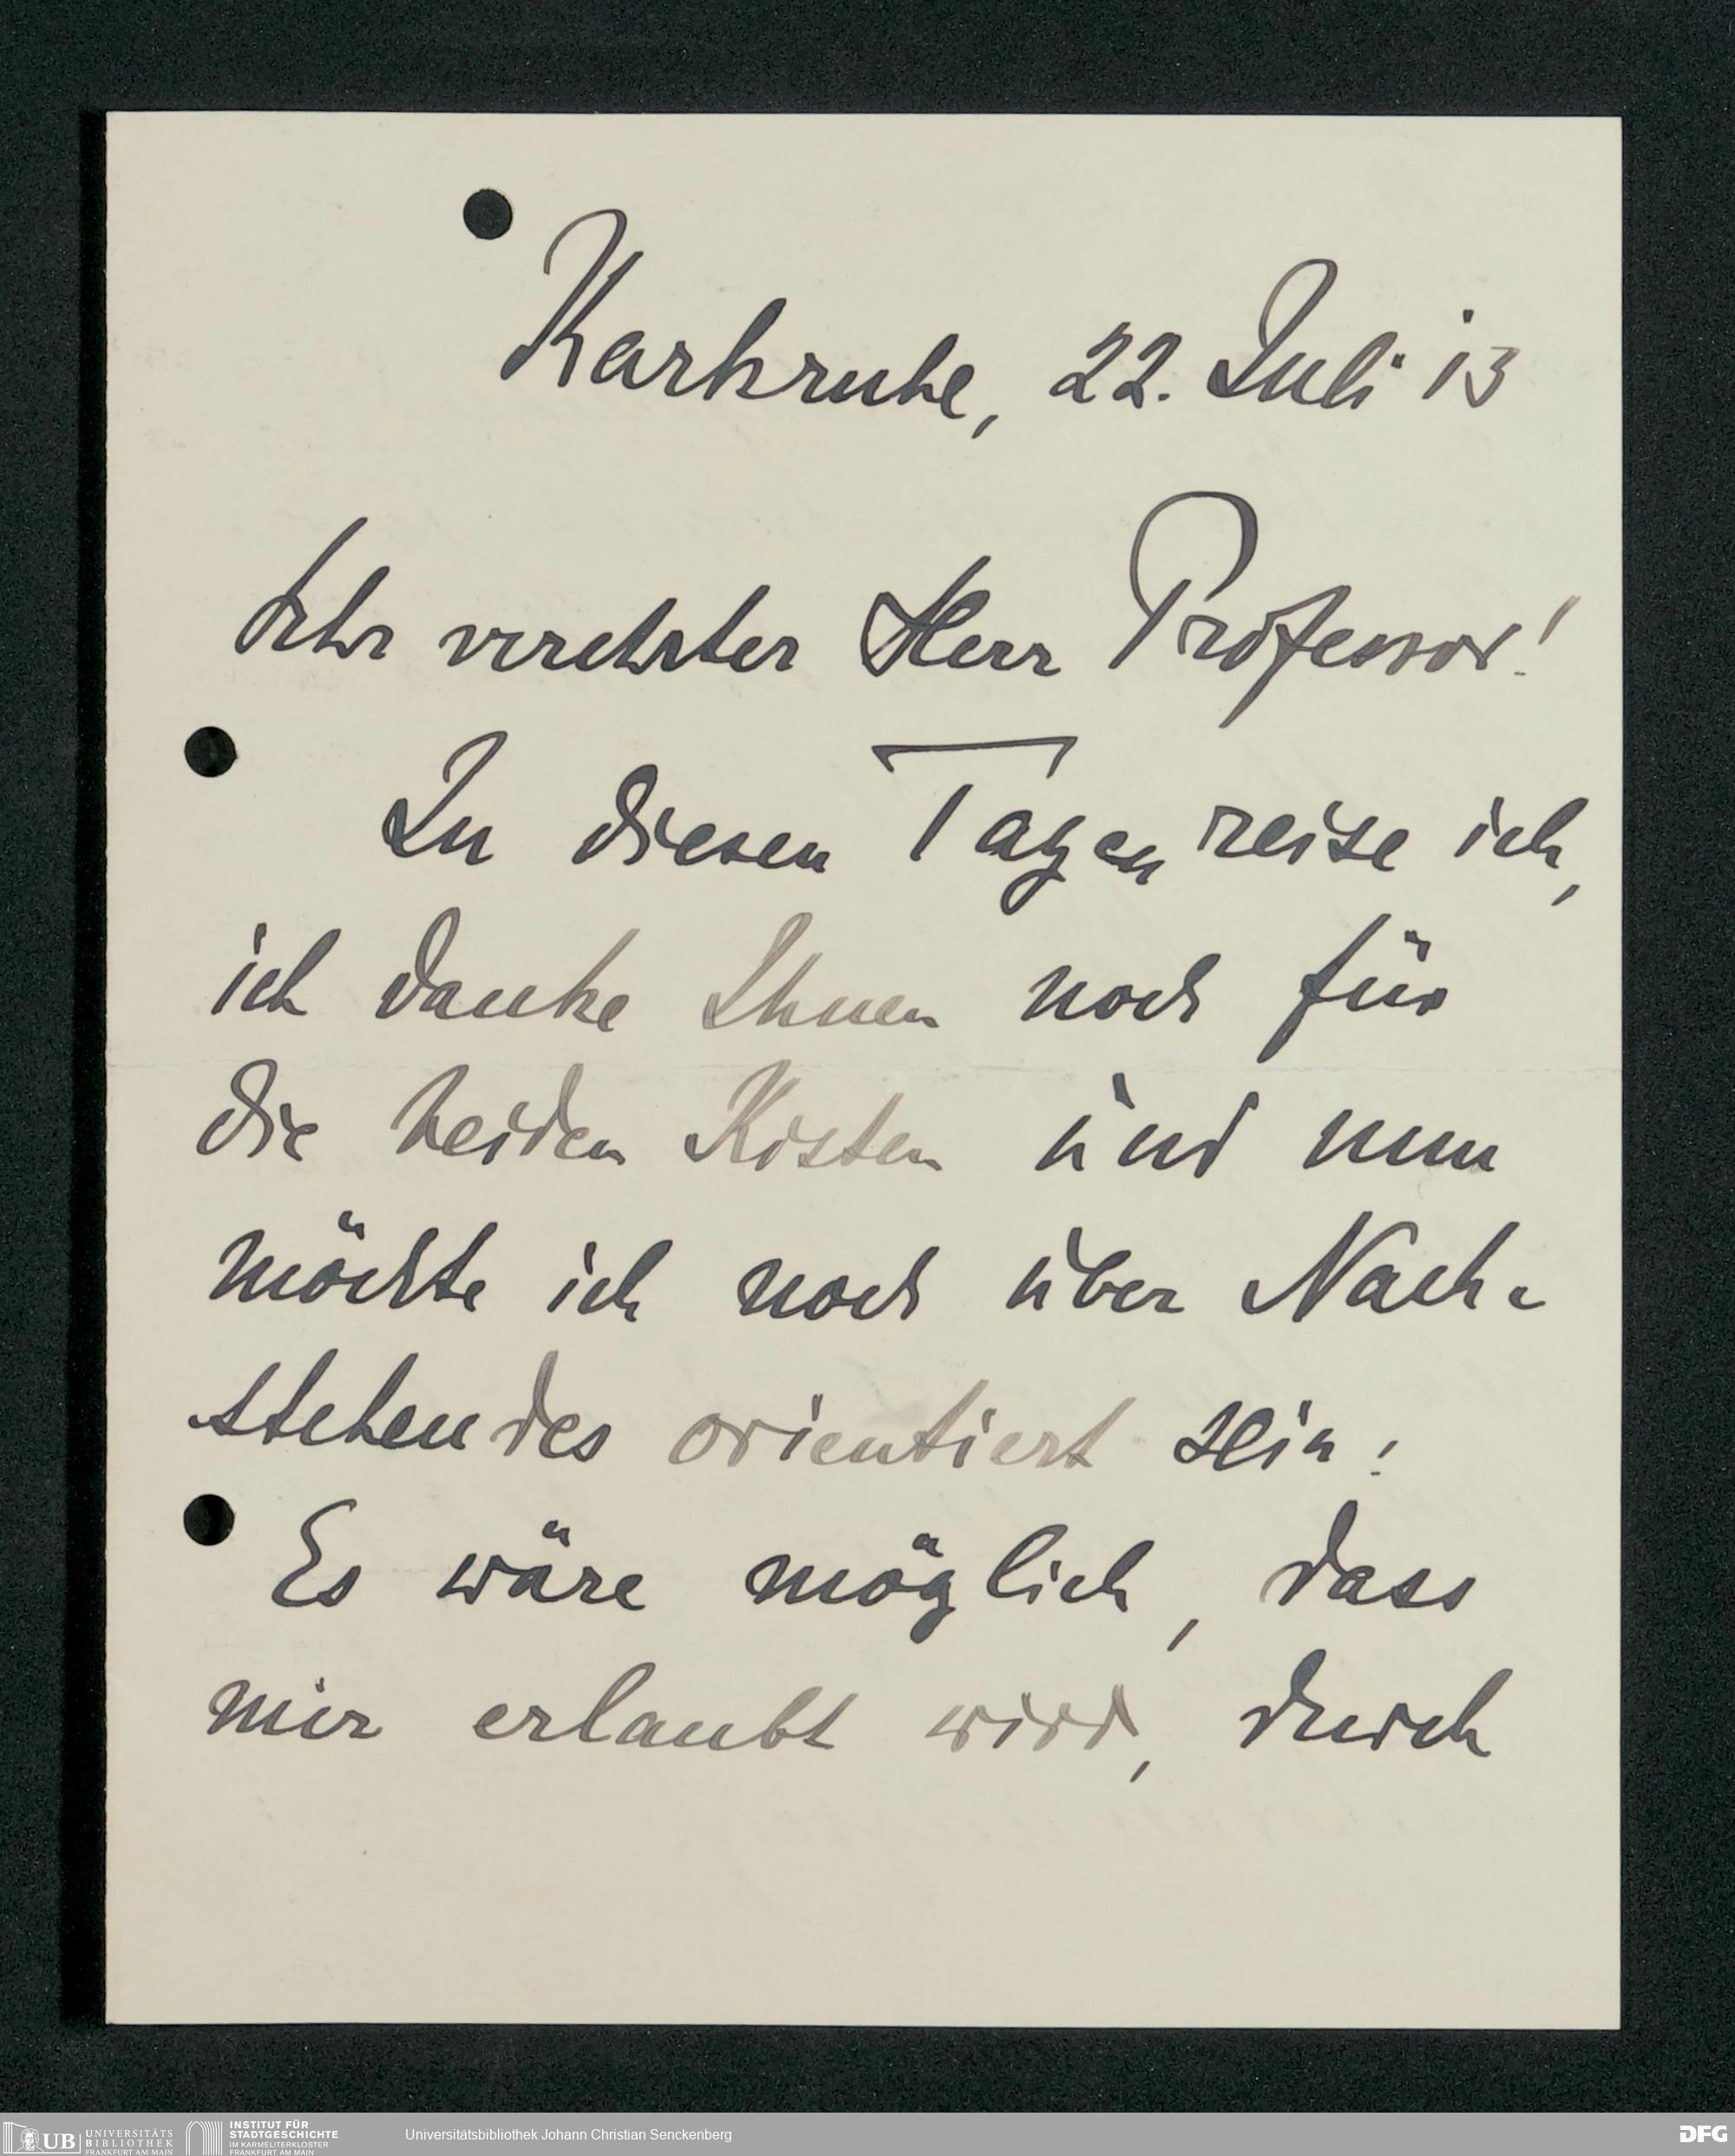 Karlsruhe, 22. Juli 13
Sehr verehrter Herr Professor!
In diesen Tagen reise ich,
ich danke Ihnen noch für
die beiden Kisten und nun
möchte ich noch über Nach-
stehendes orientiert sein:
Es wäre möglich, dass
mir erlaubt wird, durch
UB UNIVERSITÄTS BIBLIOTHEK FRANKFURT AM MAIN
INSTITUT FÜR STADTGESCHICHTE IM KARMELITERKLOSTER FRANKFURT AM MAIN
Universitätsbibliothek Johann Christian Senckenberg
DFG